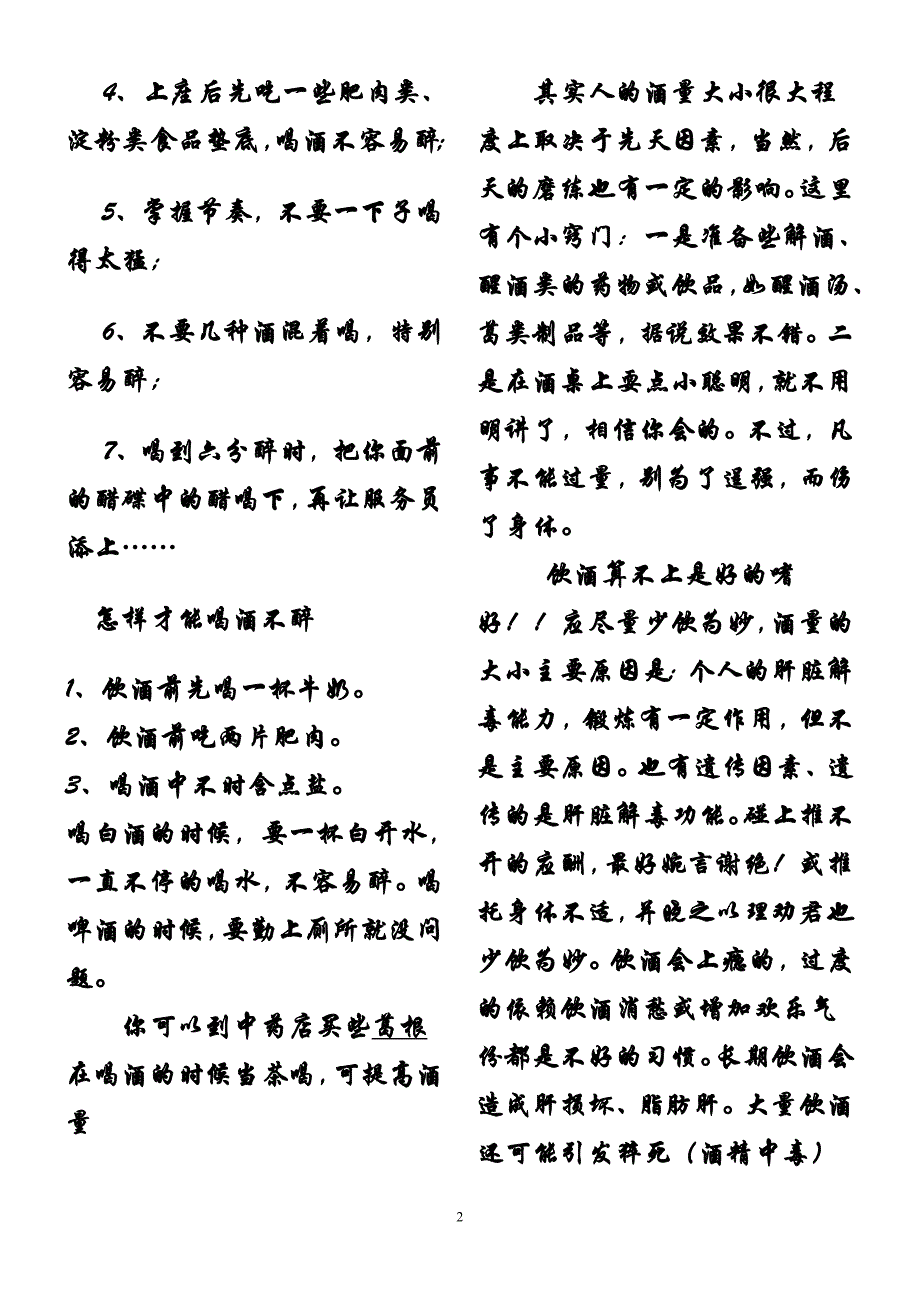 4、上座后先吃一些肥肉类、
淀粉类食品垫底,喝酒不容易醉;
5、掌握节奏,不要一下子喝
得太猛;
6、不要几种酒混着喝,特别
容易醉;
7、喝到六分醉时,把你面前
的醋碟中的醋喝下,再让服务员
添上……
怎样才能喝酒不醉
1、饮酒前先喝一杯牛奶。
2、饮酒前吃两片肥肉。
3、喝酒中不时含点盐。
喝白酒的时候,要一杯白开水,
一直不停的喝水,不容易醉。喝
啤酒的时候,要勤上厕所就没问
题。
你可以到中药店买些葛根
在喝酒的时候当茶喝,可提高酒
量
其实人的酒量大小很大程
度上取决于先天因素,当然,后
天的磨练也有一定的影响。这里
有个小窍门:一是准备些解酒、
醒酒类的药物或饮品,如醒酒汤、
葛类制品等,据说效果不错。二
是在酒桌上耍点小聪明,就不用
明讲了,相信你会的。不过,凡
事不能过量,别为了逞强,而伤
了身体。
饮酒算不上是好的嗜
好!!应尽量少饮为妙,酒量的
大小主要原因是:个人的肝脏解
毒能力,锻炼有一定作用,但不
是主要原因。也有遗传因素、遗
传的是肝脏解毒功能。碰上推不
开的应酬,最好婉言谢绝!或推
托身体不适,并晓之以理劝君也
少饮为妙。饮酒会上瘾的,过度
的依赖饮酒消愁或增加欢乐气
份都是不好的习惯。长期饮酒会
造成肝损坏、脂肪肝。大量饮酒
还可能引发猝死(酒精中毒)
2